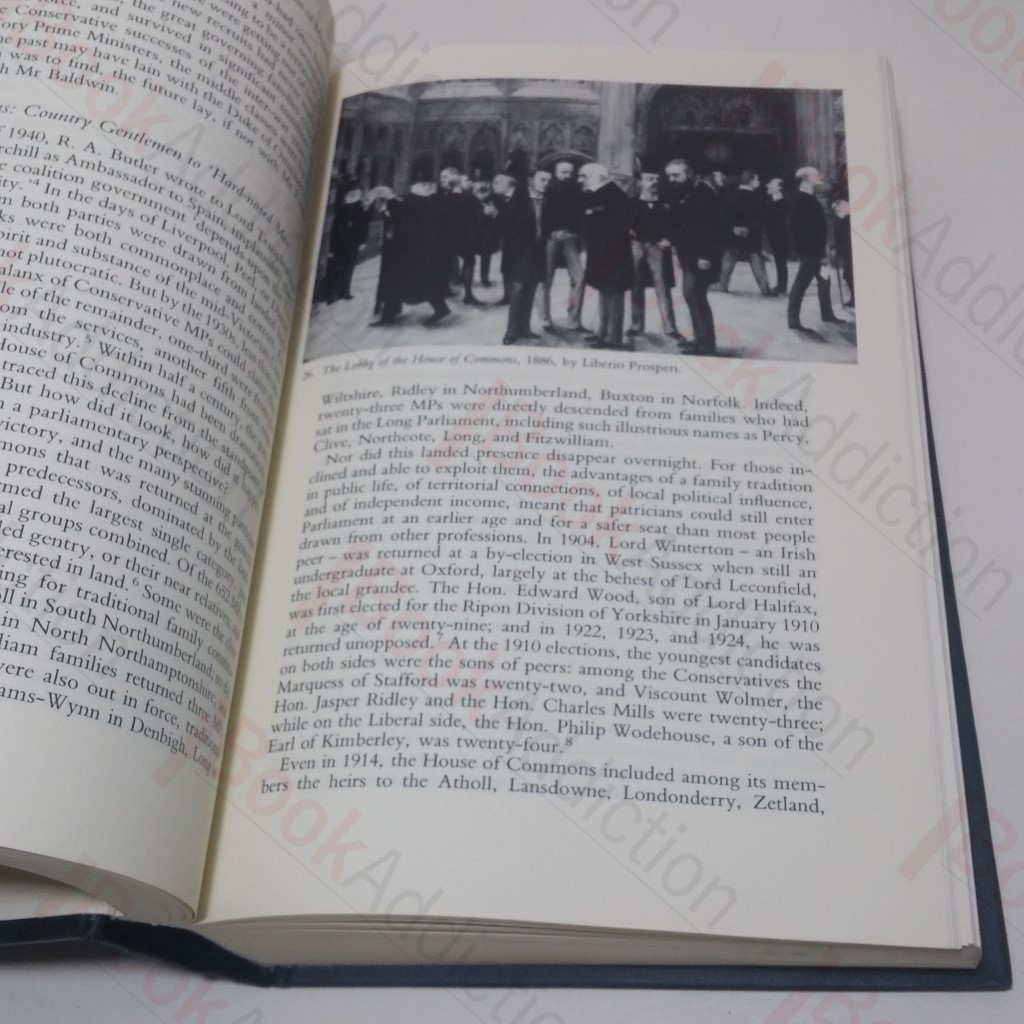 new recruits
were getting
Conservative successes of the inter-war
ory Prime Ministers, the middle class
e past may have lain with the Duke of
was to find, the future lay, if not with
h Mr Baldwin.
s: Country Gentlemen to "Hard-nosed
1940, R. A. Butler wrote to Lord
rchill as Ambassador to Spain,
e coalition government depend
ity."⁴ In the days of Liverpool, Peel, or
m both parties were drawn from
ks were both commonplace and
pirit and substance of the mid-Victorian
not plutocratic. But by the 1930s, less
alanx of Conservative MPs could claim
le of the remainder, one-third were
om the services, another fifth from
industry.⁵ Within half a century, the
House of Commons had been
traced this decline from the
But how did it look, how did it
n a parliamentary perspective?
victory, and the many stunning
mons that was returned at the
predecessors, dominated by the
rmed the largest single category,
al groups combined. Of the 652
ed gentry, or their near relatives,
erested in land.⁶ Some were the
ing for traditional family
ll in South Northumberland,
in North Northamptonshire,
liam families returned three
were also out in force,
ams-Wynn in Denbigh, Long
26. The Lobby of the House of Commons, 1886, by Liberio Prosperi.
Wiltshire, Ridley in Northumberland, Buxton in Norfolk. Indeed,
twenty-three MPs were directly descended from families who had
sat in the Long Parliament, including such illustrious names as Percy,
Clive, Northcote, Long, and Fitzwilliam.
Nor did this landed presence disappear overnight. For those in-
clined and able to exploit them, the advantages of a family tradition
in public life, of territorial connections, of local political influence,
and of independent income, meant that patricians could still enter
Parliament at an earlier age and for a safer seat than most people
drawn from other professions. In 1904, Lord Winterton – an Irish
peer – was returned at a by-election in West Sussex when still an
undergraduate at Oxford, largely at the behest of Lord Leconfield,
the local grandee. The Hon. Edward Wood, son of Lord Halifax,
was first elected for the Ripon Division of Yorkshire in January 1910
at the age of twenty-nine; and in 1922, 1923, and 1924, he was
returned unopposed.⁷ At the 1910 elections, the youngest candidates
on both sides were the sons of peers: among the Conservatives the
Marquess of Stafford was twenty-two, and Viscount Wolmer, the
Hon. Jasper Ridley and the Hon. Charles Mills were twenty-three;
while on the Liberal side, the Hon. Philip Wodehouse, a son of the
Earl of Kimberley, was twenty-four.⁸
Even in 1914, the House of Commons included among its mem-
bers the heirs to the Atholl, Lansdowne, Londonderry, Zetland,
BookAddiction